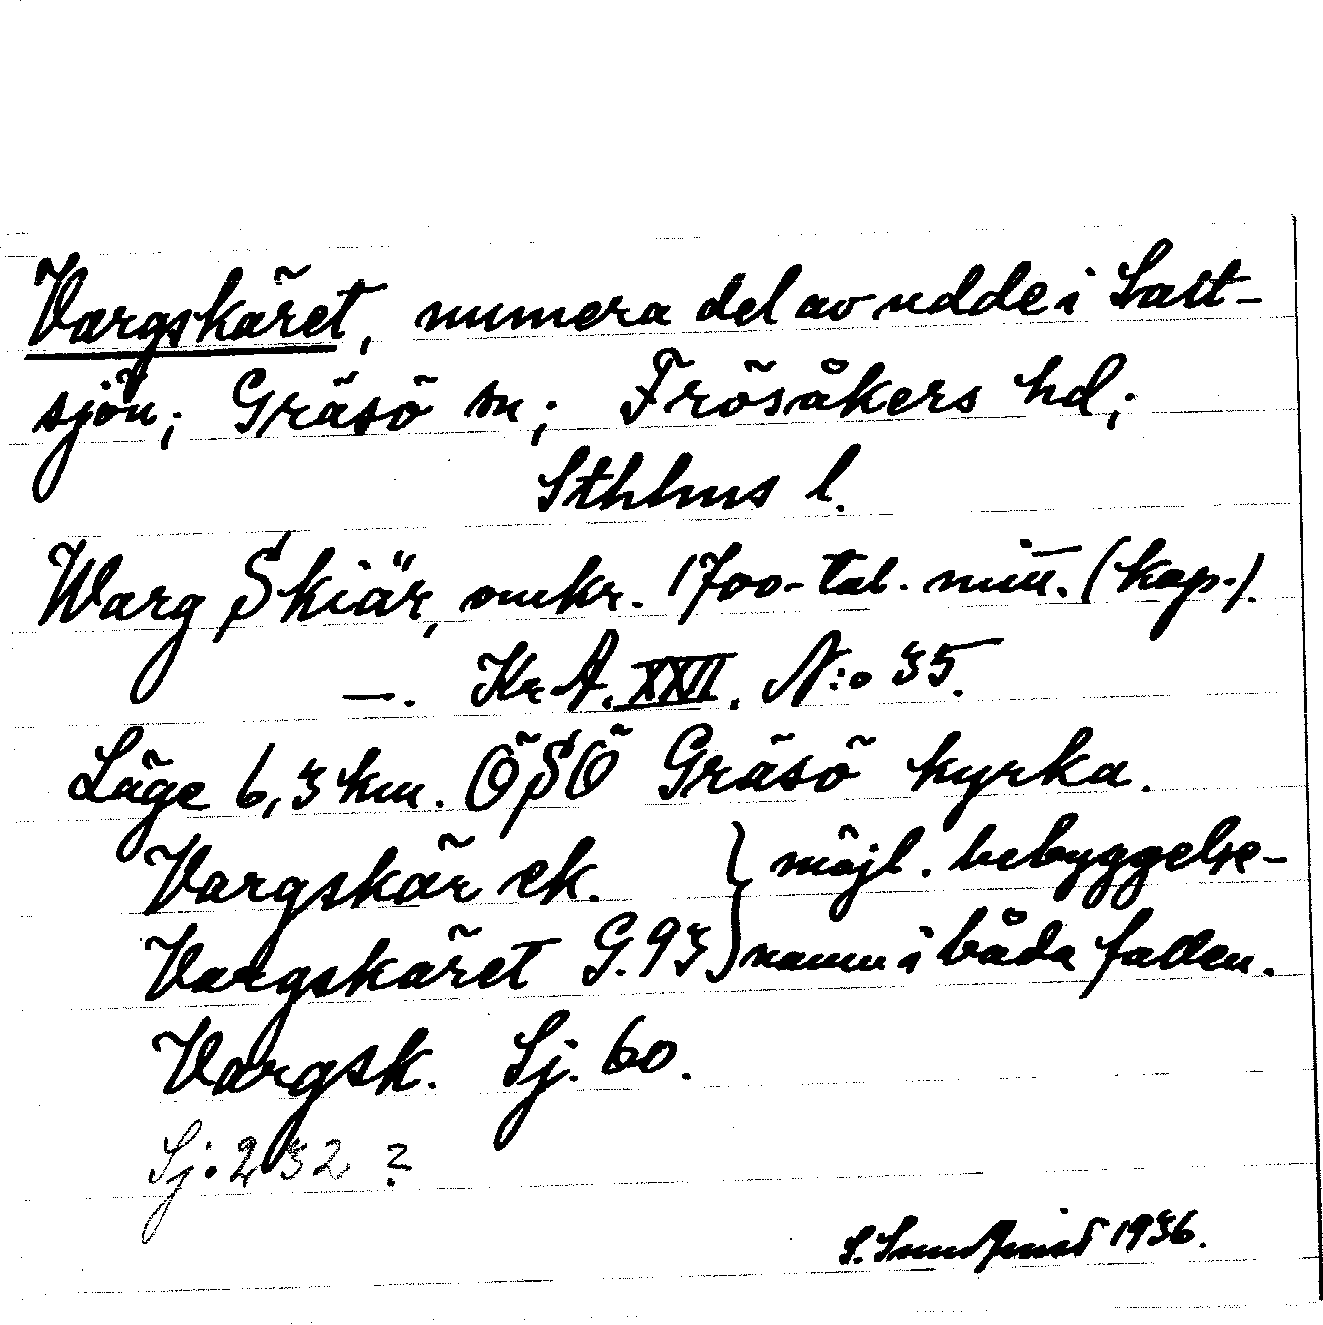 Vargskäret, numera del av udde i Salt-
sjön; Gräsö sn; Frösåkers hd;
Sthlms l.
Warg Skiär, omkr. 1700-tal. mitt. (kop.).
—. Kr A. XXII. N:o 35.
Läge 6,3 km. ÖSÖ Gräsö kyrka.
Vargskär ek. } möjl. bebyggelse-
Vargskäret G. 93 } namn i båda fallen.
Vargsk. Sj. 60.
Sj. 232 ?
S. Sundquist 1936.